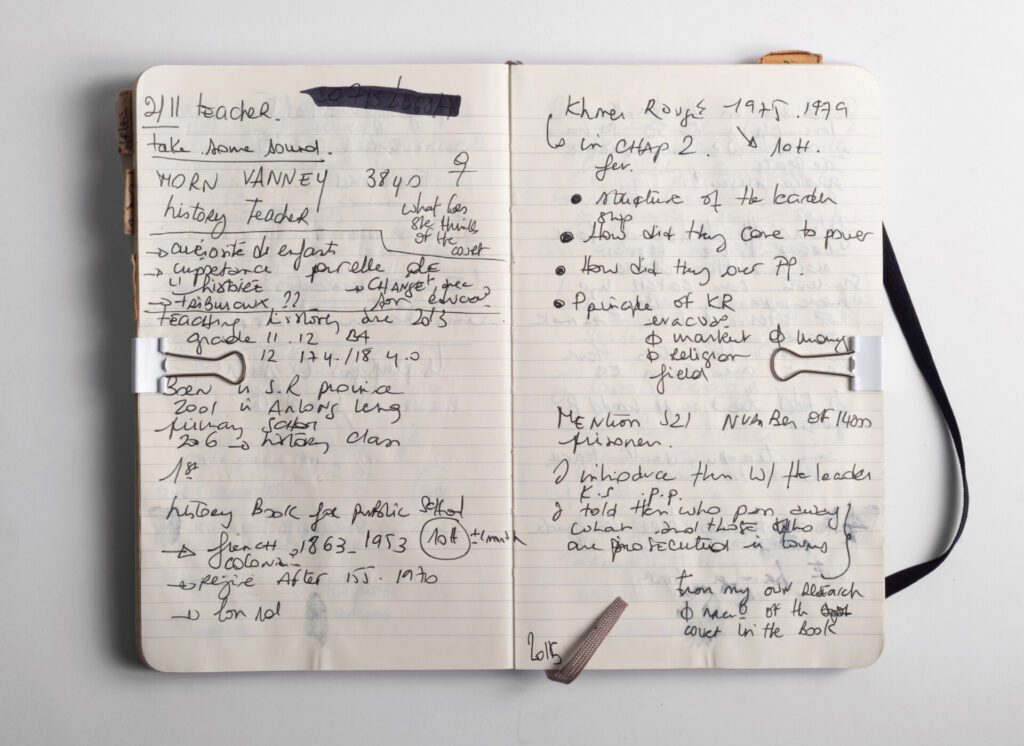 2/11 teacher.
take some sound.
MORN VANNEY 38 y.o ♀
history teacher
What does
she thinks
of the
court
→ curiosité de enfants
→ importance pour elle de
l'histoire → CHANGE avec
→ tribunaux ?? son
teaching history since 2013
grade 11. 12 B4
12 17 y./18 y.o
Born in S.R province
2001 in Anlong Veng
primary school
2006 → history class
1st
history Book for public School
→ french 1863_1953 10H ± 1 month
colonia
→ regime After 55. 1970
→ Lon nol
Khmer Rouge 1975. 1979
↳ in CHAP 2. ↘ 10H.
for.
• structure of the leader
ship
• How did they come to power
• How did they over PP.
• Principle of KR
evacuate
ø market ø money
ø religion
field
MENTION S21 NUMBER OF 14000
prisoner.
I introduce them w/ the leader
K.S P.P.
I told them who pass away
what and those who
are prosecuted in towns
from my own research
ø of the
court in the Book
2015